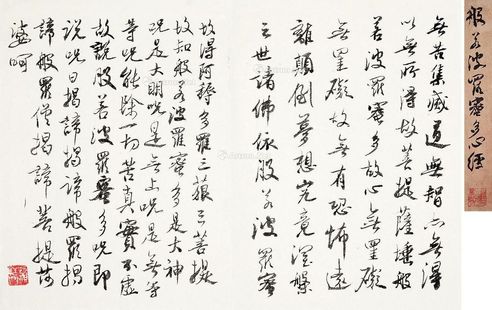 般若波羅蜜多心經
無苦集滅道無智亦無得
以無所得故菩提薩埵般
若波羅蜜多故心無罣礙
無罣礙故無有恐怖遠
離顛倒夢想究竟涅槃
三世諸佛依般若波羅蜜
故得阿耨多羅三藐三菩提
故知般若波羅蜜多是大神
咒是大明咒是無上咒是無等
等咒能除一切苦真實不虛
故說般若波羅蜜多咒即
說咒曰揭諦揭諦般羅揭
諦般羅僧揭諦菩提薩
婆呵